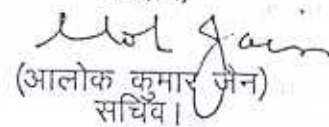 (आलोक कुमार जैन)
सचिव।